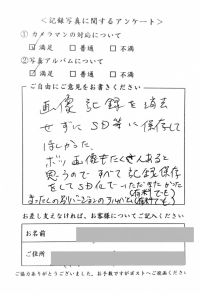 <記録写真に関するアンケート>
① カメラマンの対応について
☑ 満足 □ 普通 □ 不満
②写真アルバムについて
☑ 満足 □ 普通 □ 不満
ご自由にご意見をお書きください
画像記録を消去
せずにSD等に保存して
ほしかった。
ボツ画像もたくさんあると
思うので すべて記録保存
をしてSD化で いただきたかった
(有料でも)
まったくの別バージョンのアルバム
(有料でも)
お差し支えなければ、お客様についてご記入ください
お名前
ご住所
ご協力ありがとうございました。お手数ですがポストへご投函ください